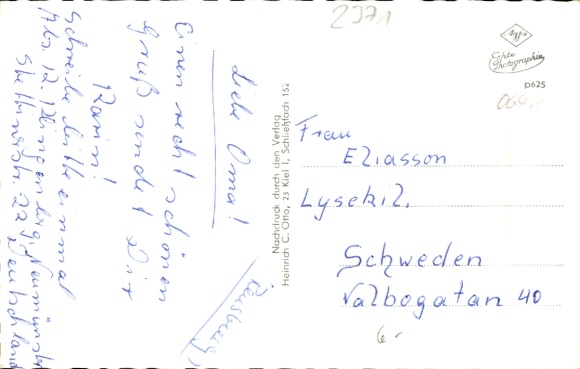 2971
Liebe Oma!
Einen recht schönen
Gruß sendet Dir
Karin!
Schreibe bitte einmal
Abs. 12. Neumünster
Stettinerstr. 22 Deutschland
(Rensburg)
Nachdruck durch den Verlag
Heinrich C. Otto, 23 Kiel 1, Schließfach 152
Agfa
Echte
Photographie
D625
Frau
Eliasson
Lysekil.
Schweden
Valbogatan 40
6-